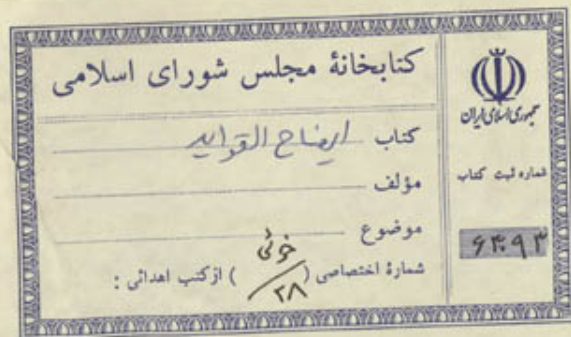 کتابخانهٔ مجلس شورای اسلامی
کتاب ایضاح الفوائد
مؤلف
موضوع
شمارهٔ اختصاصی ( خوئی / ۲۸ ) از کتب اهدائی :
جمهوری اسلامی ایران
شماره ثبت کتاب
۶۴۰۹۳